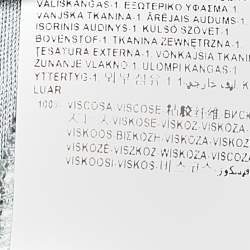 VÄLISKANGAS-1 ΕΞΩΤΕΡΙΚΟ ΥΦΑΣΜΑ 1
VANJSKA TKANINA-1 ĀRĒJAIS AUDUMS-1
IŠORINIS AUDINYS-1 KÜLSŐ SZÖVET-1
BOVENSTOF-1 TKANINA ZEWNĘTRZNA-1
ȚESĂTURĂ EXTERNĂ-1 VONKAJŠIA TKANINA
ZUNANJE VLAKNO-1 ULOMPI KANGAS-1
YTTERTYG-1 1
LUAR
100% VISCOSA VISCOSE 粘胶纤维 ВИСК
VISKOSE VISKOZ VISKOZA
VISKOOS ΒΙΣΚΟΖΗ VISKOZA VISKOZE
VISKOZĖ VISZKÓZ WISKOZA VISCOZĂ
VISKOOSI VISKOS 비스코스